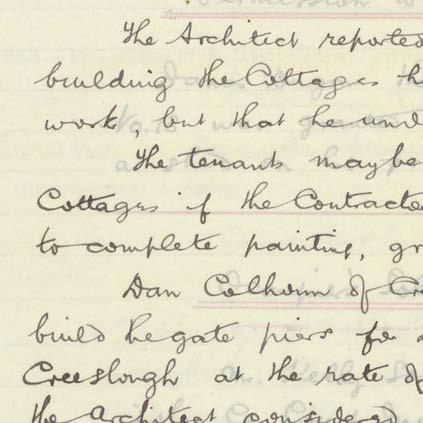 The Architect reported
building the Cottages h
work, but that he und
The tenants may be
Cottages if the Contracto
to complete painting, gr
Dan Colhoun of Cr
build he gate piers for
Creeslough at the rate of
the Architect considered